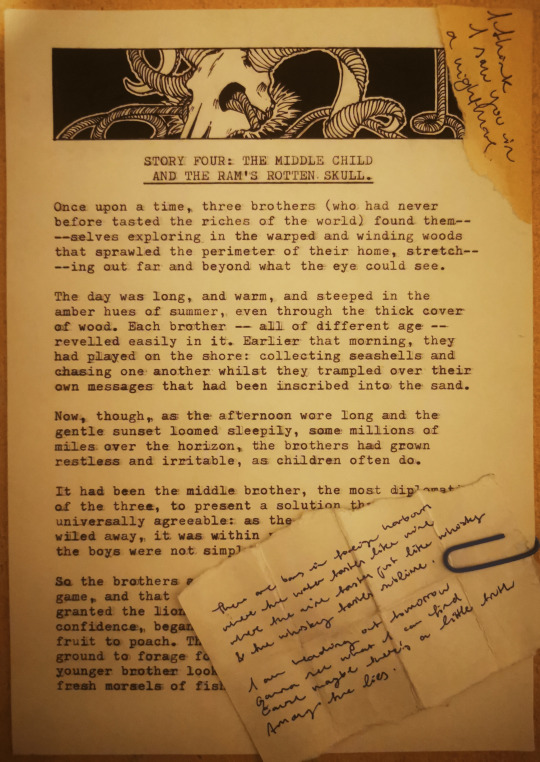 I think
I saw you in
a nightmare.
STORY FOUR: THE MIDDLE CHILD
AND THE RAM'S ROTTEN SKULL.
Once upon a time, three brothers (who had never
before tasted the riches of the world) found them--
--selves exploring in the warped and winding woods
that sprawled the perimeter of their home, stretch--
--ing out far and beyond what the eye could see.
The day was long, and warm, and steeped in the
amber hues of summer, even through the thick cover
of wood. Each brother -- all of different age --
revelled easily in it. Earlier that morning, they
had played on the shore: collecting seashells and
chasing one another whilst they trampled over their
own messages that had been inscribed into the sand.
Now, though, as the afternoon wore long and the
gentle sunset loomed sleepily, some millions of
miles over the horizon, the brothers had grown
restless and irritable, as children often do.
It had been the middle brother, the most diplomat
of the three, to present a solution th
universally agreeable: as the
wiled away, it was within
the boys were not simpl
So the brothers
game, and that
granted the lion
confidence, began
fruit to poach. Th
ground to forage fo
younger brother look
fresh morsels of fish
There are bars in foreign harbours
where the water tastes like wine
where the wine tastes just like whisky
& the whisky tastes sublime.
I am heading out tomorrow
Gonna see what I can find
Cause maybe there's a little truth
Among the lies.